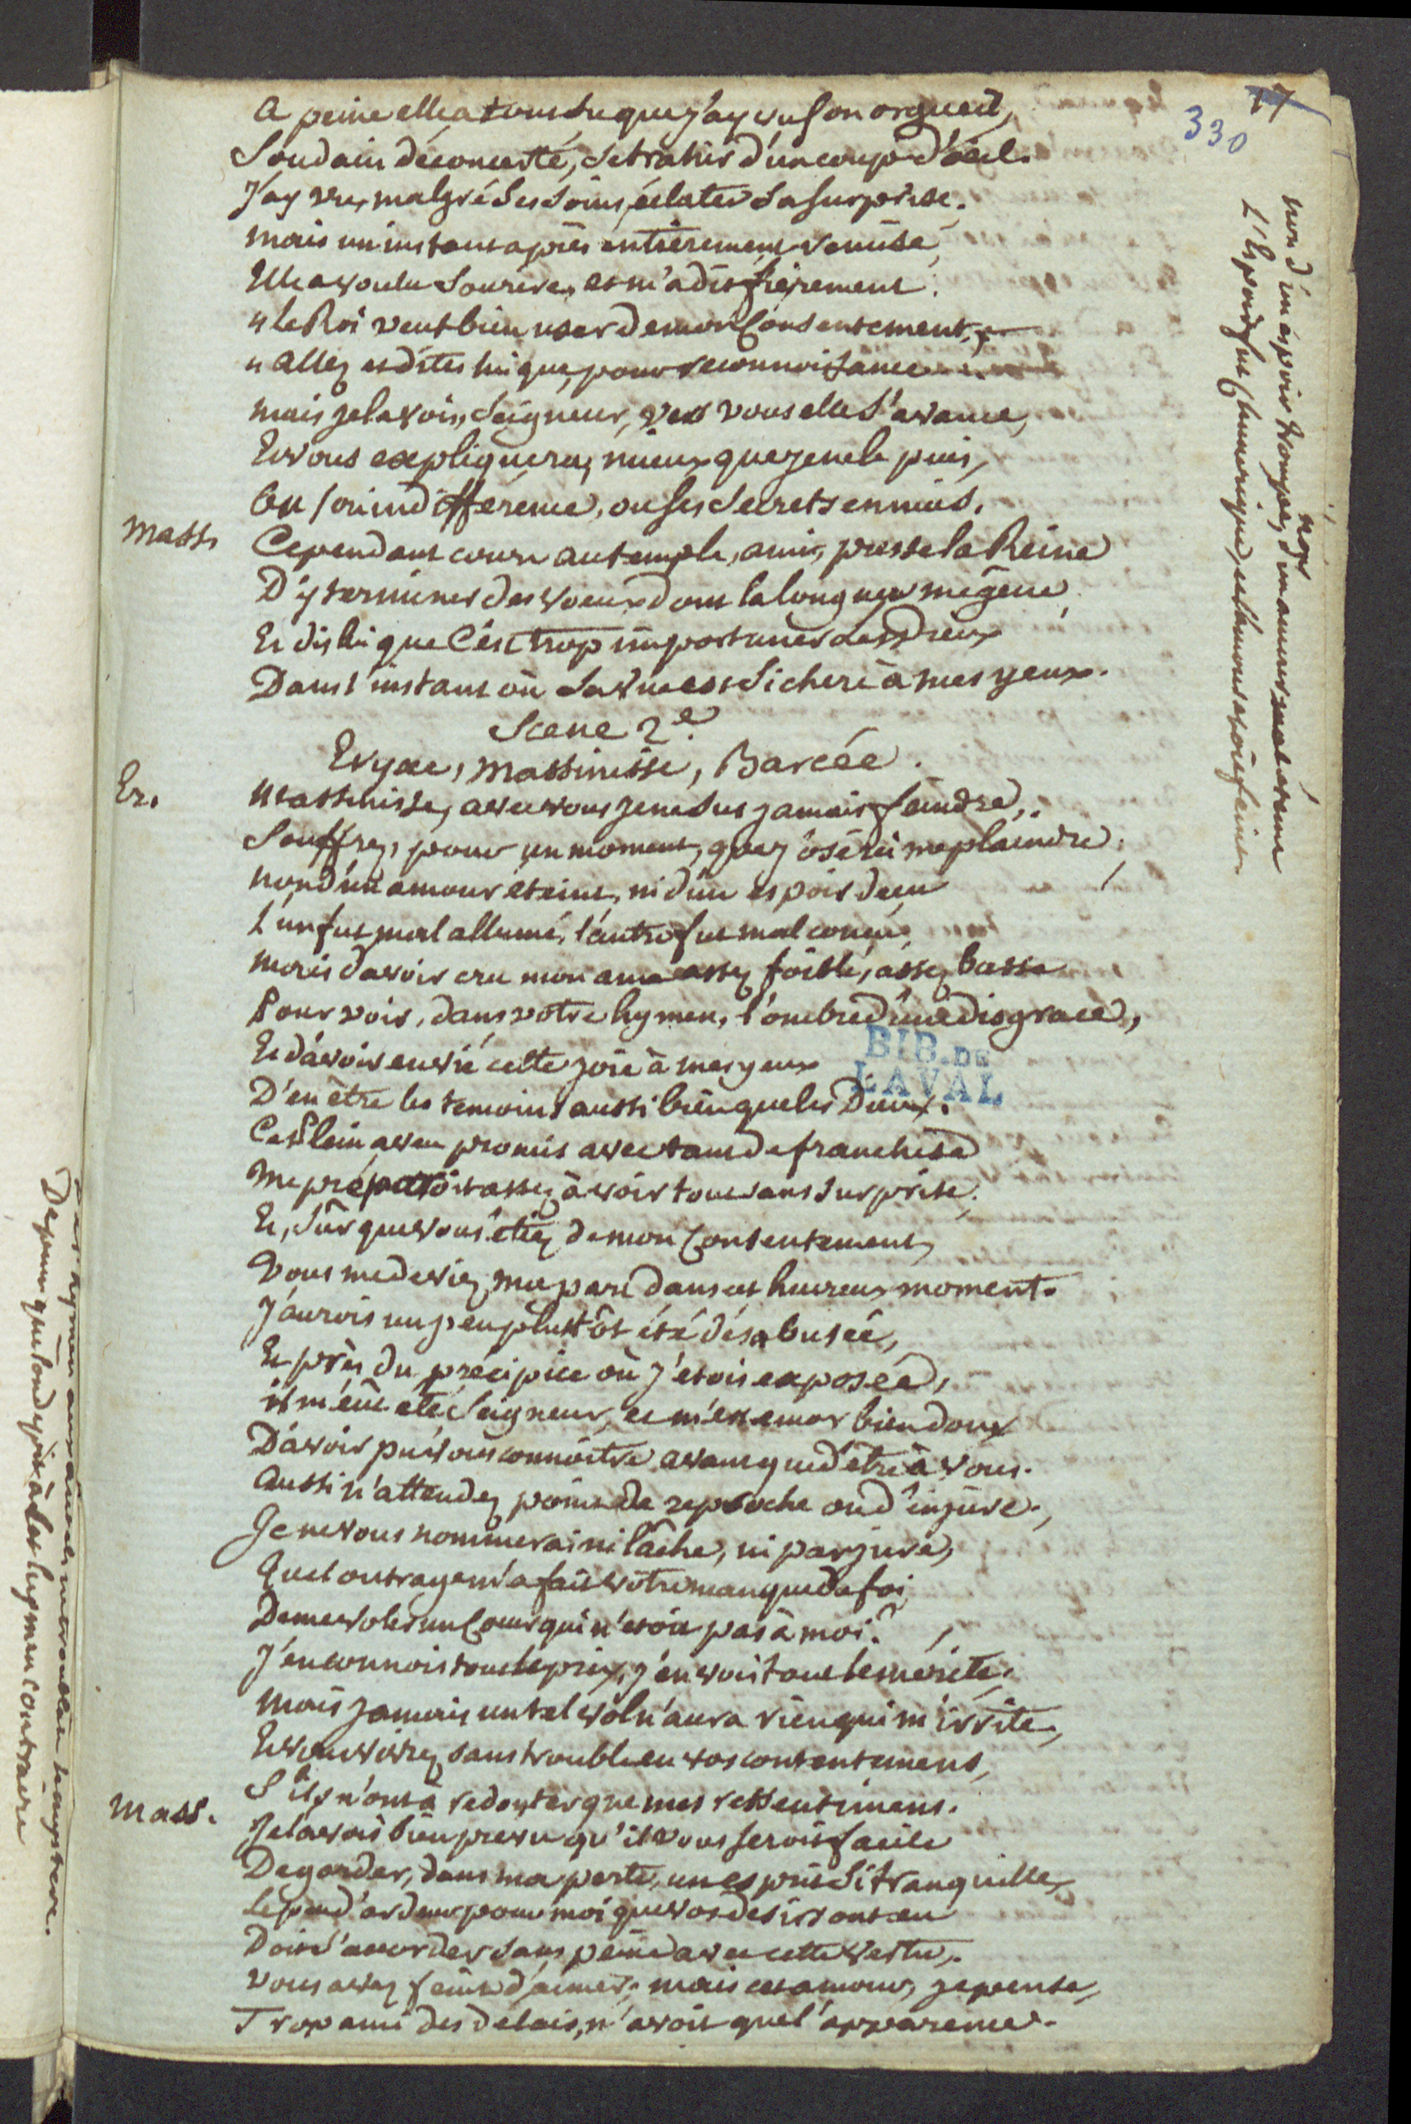 17
330
A peine elle a tout su que j'ay vu son orgueil,
Soudain déconcerté, se trahir d'un coup d'oeil.
J'ay vu, malgré ses soins, éclater sa surprise.
mais un instant après entierement remise,
Elle a voulu sourire, et m'a dit fièrement:
"le Roi veut bien user de mon Consentement,
"allez et dites lui que, pour reconnoissance
mais je la vois, Seigneur, vers vous elle s'avance,
Et vous expliquera, mieux que je ne le puis,
Ou son indifference, ou ses secrets ennuis.
Mass. Cependant cours au temple, ami, presse la Reine
D'y terminer des voeux dont la longueur me gêne
Et dis lui que C'est trop importuner les Dieux
Dans l'instant où sa vue est si chere à mes yeux.
Scene 2e.
Eryxe, Massinisse, Barcée.
Er. Massinisse, avec vous je ne sus jamais feindre,
Souffrez, pour un moment, que j'ose ici me plaindre,
non d'un amour éteint, ni d'un espoir deçu
L'un fut mal allumé, l'autre fut mal conçu,
mais d'avoir cru mon ame assez foible, assez basse
Pour voir, dans votre hymen, l'ombre d'une disgrace,
Et d'avoir envié cette joie à mes yeux
D'en être les temoins aussi bien que les Dieux.
Ce plein aveu promis avec tant de franchise
Me préparoit assez à voir tout sans surprise;
Et, sûr que vous étiez de mon Consentement,
Vous me deviez ma part dans cet heureux moment.
J'aurois un peu plustôt été désabusée,
Et près du précipice où j'etois exposée,
il m'eût été, Seigneur, et m'est encor bien doux
D'avoir pu vous connoître avant que d'être à vous.
Aussi n'attendez point de reproche ou d'injure.
Je ne vous nommerai ni lâche, ni parjure,
Quel outrage m'a fait votre manque de foi
De me voler un Coeur qui n'etoit pas à moi?
J'en connois tout le prix, j'en vois tout le mérite,
Mais jamais un tel vol n'aura rien qui m'irrite,
Et vous vivrez sans trouble en vos contentemens,
S'ils n'ont à redouter que mes ressentimens.
Mass. Je l'avois bien prevu qu'il vous seroit facile
De garder, dans ma perte, un esprit si tranquille,
Le peu d'ardeur pour moi que vos desirs ont eu
Doit s'accorder sans peine avec cette vertu.
Vous avez feint d'aimer, mais cet amour, je pense,
Trop ami des delais, n'avoit que l'apparence.
non d'un espoir trompé, non d'un amour mal éteint
L'Espoir fut Chimerique, et l'amour etoit feint
BIB. DE
LAVAL
Depuis qu'on
hymen contraire